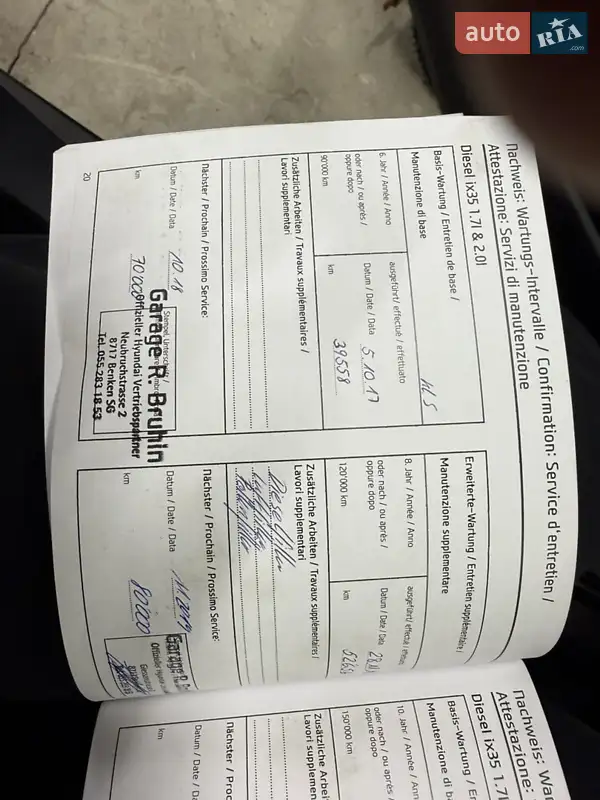 auto RIA .com
Nachweis: Wartungs-Intervalle / Confirmation: Service d'entretien /
Attestazione: Servizi di manutenzione
Diesel ix35 1.7l & 2.0l
Basis-Wartung / Entretien de base /
Manutenzione di base
6. Jahr / Année / Anno
oder nach / ou après /
oppure dopo
90'000 km
ausgeführt/ effectué / effettuato
Datum / Date / Data 5.10.17
km 39558
Zusätzliche Arbeiten / Travaux supplémentaires /
Lavori supplementari
Nächster / Prochain / Prossimo Service:
Datum / Date / Data 10.18
km 70'000
Stempel, Unterschrift /
Garage R. Bruhin
Offizieller Hyundai Vertriebspartner
Neubruchstrasse 2
8717 Benken SG
Tel. 055 283 18 53
20
Erweiterte-Wartung / Entretien supplémentaire /
Manutenzione supplementare
8. Jahr / Année / Anno
oder nach / ou après /
oppure dopo
120'000 km
ausgeführt/ effectué /
Datum / Date / Data
km
Zusätzliche Arbeiten / Travaux supplémentaires /
Lavori supplementari
Nächster / Prochain / Prossimo Service:
Datum / Date / Data 11.2019
km 80'000
Nachweis:
Attestazione:
Diesel ix35
Basis-Wartung /
Manutenzione di
10. Jahr / Année / Ann
oder nach / ou après /
oppure dopo
150'000 km
Zusätzliche Arbeiten /
Lavori supplementari
Nächster / Proc
Datum / Date / D
km